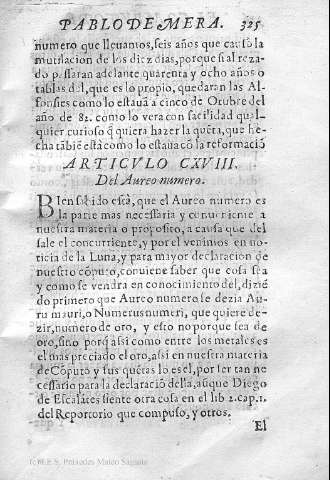 PABLO DE MERA. 325
numero que lleuamos, seis años que causò la
mutilacion de los diez dias, porque si al reza-
do passaran adelante quarenta y ocho años o
tablas del, que es lo propio, quedaran las Al-
fonsies como lo estauã a cinco de Otubre del
año de 82. como lo vera con facilidad qual-
quier curioso q̃ quiera hazer la quẽta, que he-
cha tãbiẽ està como lo estaua cõ la reformaciõ
ARTICVLO CXVIII.
Del Aureo numero.
BIen sabido està, que el Aureo numero es
la parte mas necessaria y conuiniente a
nuestra materia o proposito, a causa que del
sale el concurriente, y por el venimos en no-
ticia de la Luna, y para mayor declaracion de
nuestro cõputo, conuiene saber que cosa sea
y como se vendra en conocimiento del, dizie͂
do primero que Aureo numero se dezia Au-
ru mauri, o Numerus numeri, que quiere de-
zir, numero de oro, y esto no porque sea de
oro, sino porq̃ assi como entre los metales es
el mas preciado el oro, assi en nuestra materia
de Cõputo y sus quẽtas lo es el, por ser tan ne
cessario para la declaraciõ della, aũque Diego
de Escalâtes siente otra cosa en el lib 2. cap. 1.
del Reportorio que compuso, y otros.
El
I.E.S. Praxedes Mateo Sagasta